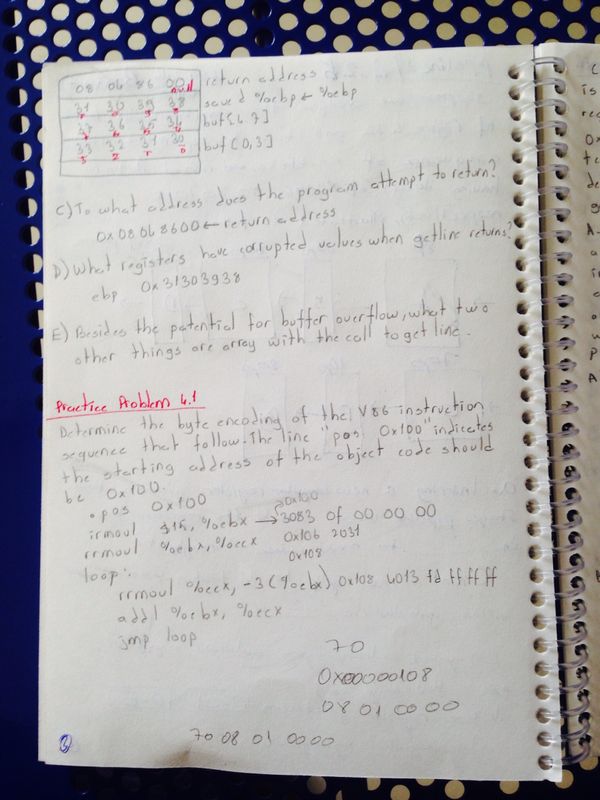 08 06 86 00 return address
null
31 30 39 38 saved %ebp ← %ebp
37 36 35 34 buf[4,7]
33 32 31 30 buf[0,3]
C) To what address does the program attempt to return?
0x08068600 ← return address
D) What registers have corrupted values when getline returns?
ebp 0x31303938
E) Besides the potential for buffer overflow, what two
other things are array with the call to get line.
Practice Problem 4.1
Determine the byte encoding of the Y86 instruction
sequence that follow. The line "pos 0x100" indicates
the starting address of the object code should
be 0x100.
.pos 0x100
0x100
irmovl $15, %ebx → 3083 0f 00 00 00
rrmovl %ebx, %ecx 0x106 2031
loop: 0x108
rrmovl %ecx, -3(%ebx) 0x108 4013 fd ff ff ff
addl %ebx, %ecx
jmp loop
70
0x00000108
08 01 0000
70 08 01 0000